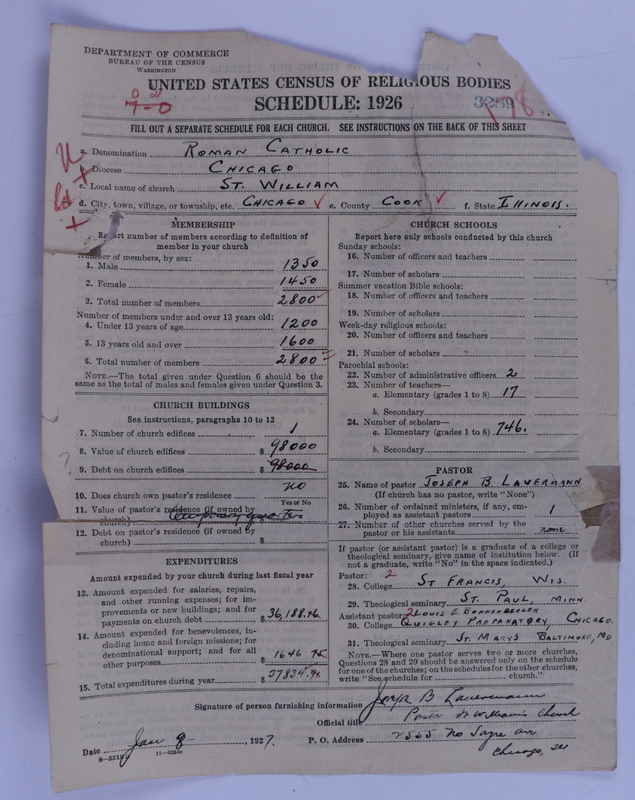 DEPARTMENT OF COMMERCE
BUREAU OF THE CENSUS
WASHINGTON
UNITED STATES CENSUS OF RELIGIOUS BODIES
SCHEDULE: 1926
3289
FILL OUT A SEPARATE SCHEDULE FOR EACH CHURCH. SEE INSTRUCTIONS ON THE BACK OF THIS SHEET
a. Denomination ROMAN CATHOLIC
b. Diocese CHICAGO
c. Local name of church ST. WILLIAM
d. City, town, village, or township, etc. CHICAGO e. County COOK f. State ILLINOIS.
MEMBERSHIP
Report number of members according to definition of
member in your church
Number of members, by sex:
1. Male 1350
2. Female 1450
3. Total number of members 2800
Number of members under and over 13 years old:
4. Under 13 years of age 1200
5. 13 years old and over 1600
6. Total number of members 2800
NOTE.—The total given under Question 6 should be the
same as the total of males and females given under Question 3.
CHURCH BUILDINGS
See instructions, paragraphs 10 to 12
7. Number of church edifices 1
8. Value of church edifices $ 98000
9. Debt on church edifices $ 98000
10. Does church own pastor's residence no
Yes or No
11. Value of pastor's residence (if owned by
church) temporary quarters
12. Debt on pastor's residence (if owned by
church) $
EXPENDITURES
Amount expended by your church during last fiscal year
13. Amount expended for salaries, repairs,
and other running expenses; for im-
provements or new buildings; and for
payments on church debt $ 36,188.
14. Amount expended for benevolences, in-
cluding home and foreign missions; for
denominational support; and for all
other purposes $ 1646
15. Total expenditures during year $ 37834.
CHURCH SCHOOLS
Report here only schools conducted by this church
Sunday schools:
16. Number of officers and teachers
17. Number of scholars
Summer vacation Bible schools:
18. Number of officers and teachers
19. Number of scholars
Week-day religious schools:
20. Number of officers and teachers
21. Number of scholars
Parochial schools:
22. Number of administrative officers 2
23. Number of teachers—
a. Elementary (grades 1 to 8) 17
b. Secondary
24. Number of scholars—
a. Elementary (grades 1 to 8) 746.
b. Secondary
PASTOR
25. Name of pastor JOSEPH B LAUERMANN
(If church has no pastor, write "None")
26. Number of ordained ministers, if any, em-
ployed as assistant pastors 1
27. Number of other churches served by the
pastor or his assistants none
If pastor (or assistant pastor) is a graduate of a college or
theological seminary, give name of institution below. (If
not a graduate, write "No" in the space indicated.)
Pastor: 2
28. College ST FRANCIS, WIS.
29. Theological seminary ST. PAUL, MINN.
Assistant pastor: 2 LOUIS E
30. College QUIGLEY PREPARATORY, CHICAGO.
31. Theological seminary ST. MARYS BALTIMORE, MD
NOTE.—Where one pastor serves two or more churches,
Questions 28 and 29 should be answered only on the schedule
for one of the churches; on the schedules for the other churches,
write "See schedule for church."
Signature of person furnishing information Joseph B Lauermann
Official title Pastor St Williams Church
Date Jan 8, 1927. P. O. Address 2555 No Sayre av
Chicago, Ill